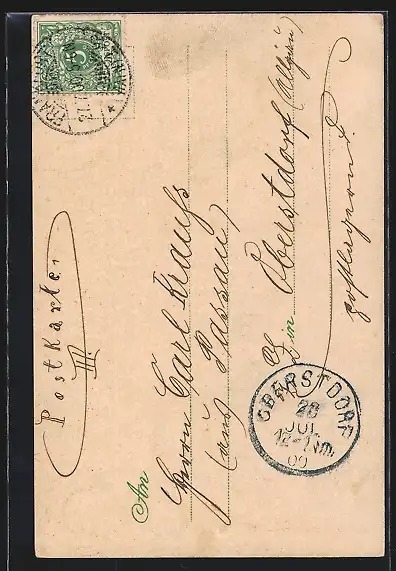 Postkarte.
III.
An
Herrn Carl Krauß
(aus Passau)
in Oberstdorf (Allgäu)
postlagernd.
OBERSTDORF
28
JUL
12-1 Nm.
00
5